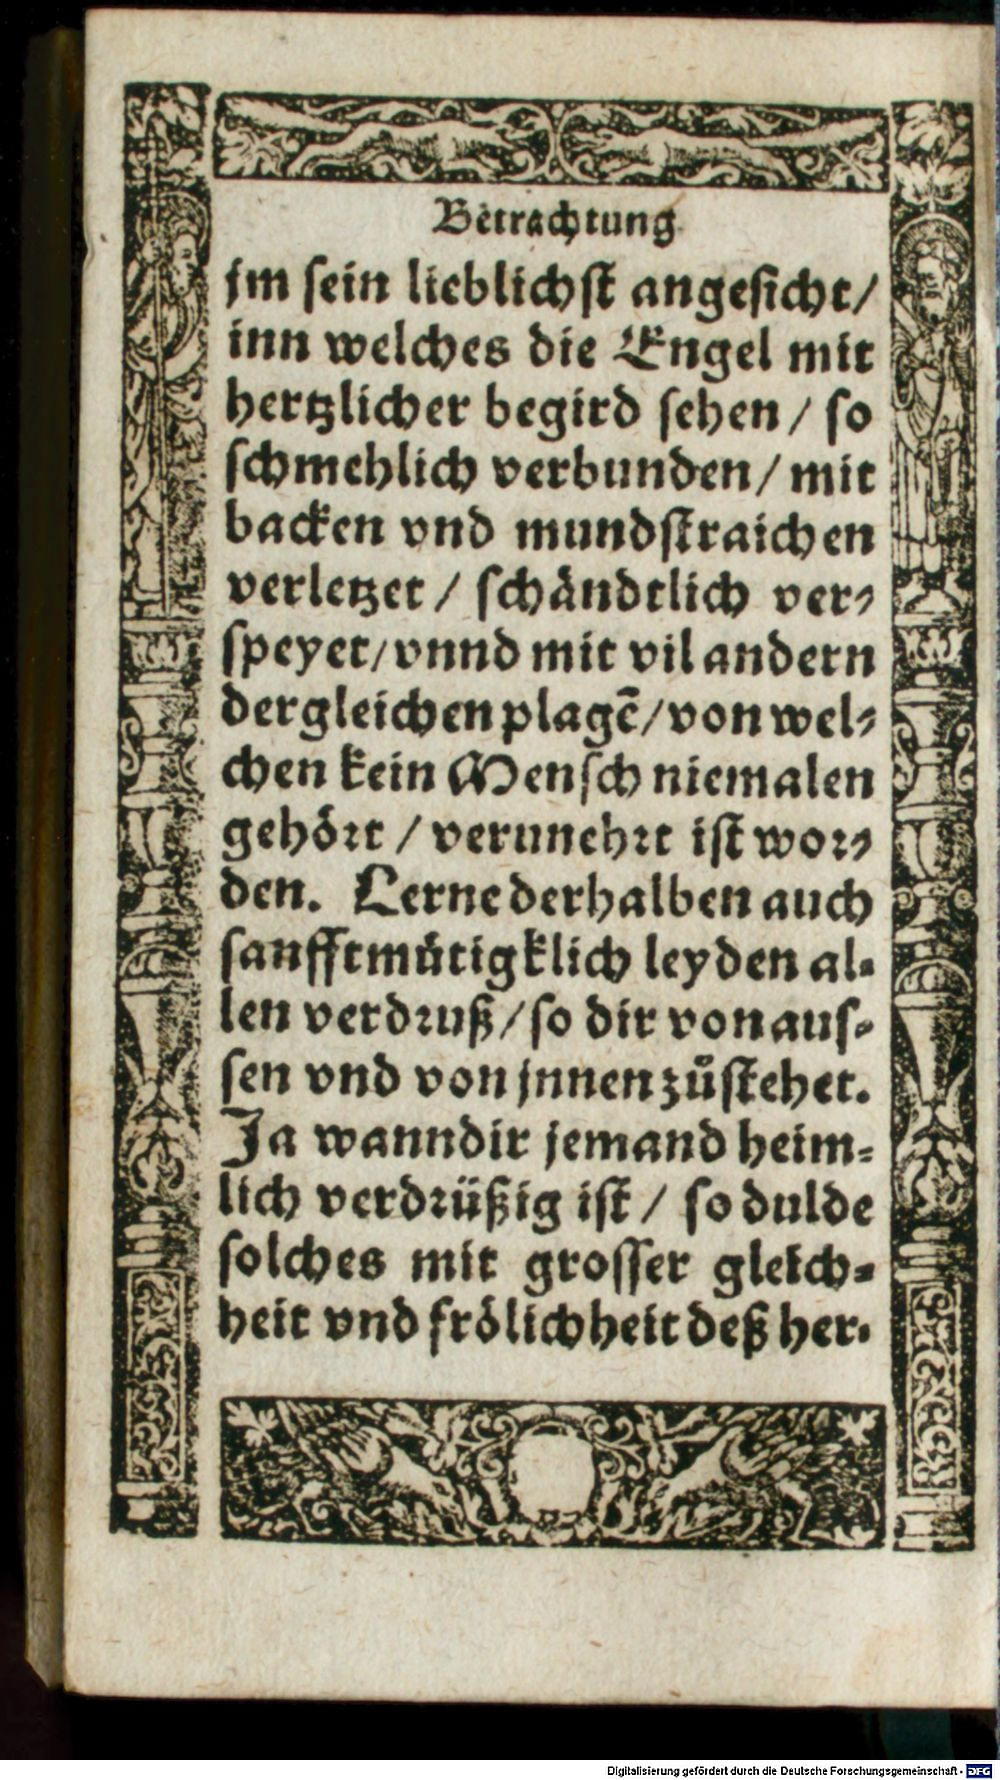 Betrachtung
jm sein lieblichst angesicht/
inn welches die Engel mit
hertzlicher begird sehen / so
schmehlich verbunden / mit
backen vnd mundstraichen
verletzet / schändtlich ver⸗
speyet/vnnd mit vil andern
dergleichen plagē/von wel⸗
chen kein Mensch niemalen
gehört / verunehrt ist wor⸗
den. Lerne derhalben auch
sanfftmütigklich leyden al⸗
len verdruß/so dir von aus⸗
sen vnd von jnnen zůstehet.
Ja wanndir jemand heim⸗
lich verdrüßig ist / so dulde
solches mit grosser gleich⸗
heit vnd frölichheit deß her⸗
Digitalisierung gefördert durch die Deutsche Forschungsgemeinschaft - DFG